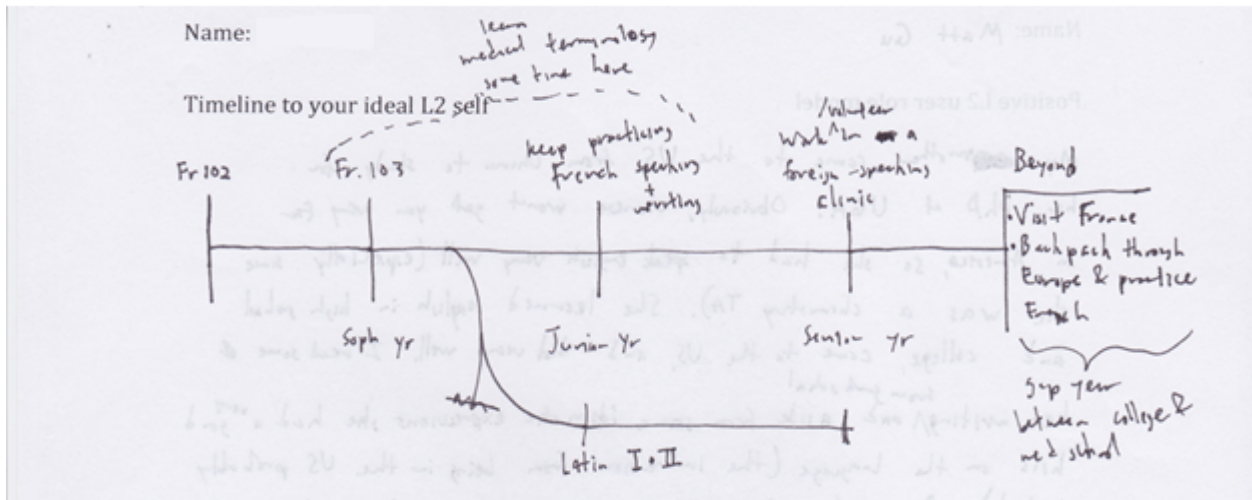 Name:
learn
medical terminology
some time here
Timeline to your ideal L2 self
Fr 102
Fr. 103
keep practicing
French speaking
+
writing
/volunteer
work ^ in a
foreign-speaking
clinic
Beyond
• Visit France
• Backpack through
Europe & practice
French
Soph yr
Junior yr
Senior yr
Latin I + II
gap year
between college &
med school